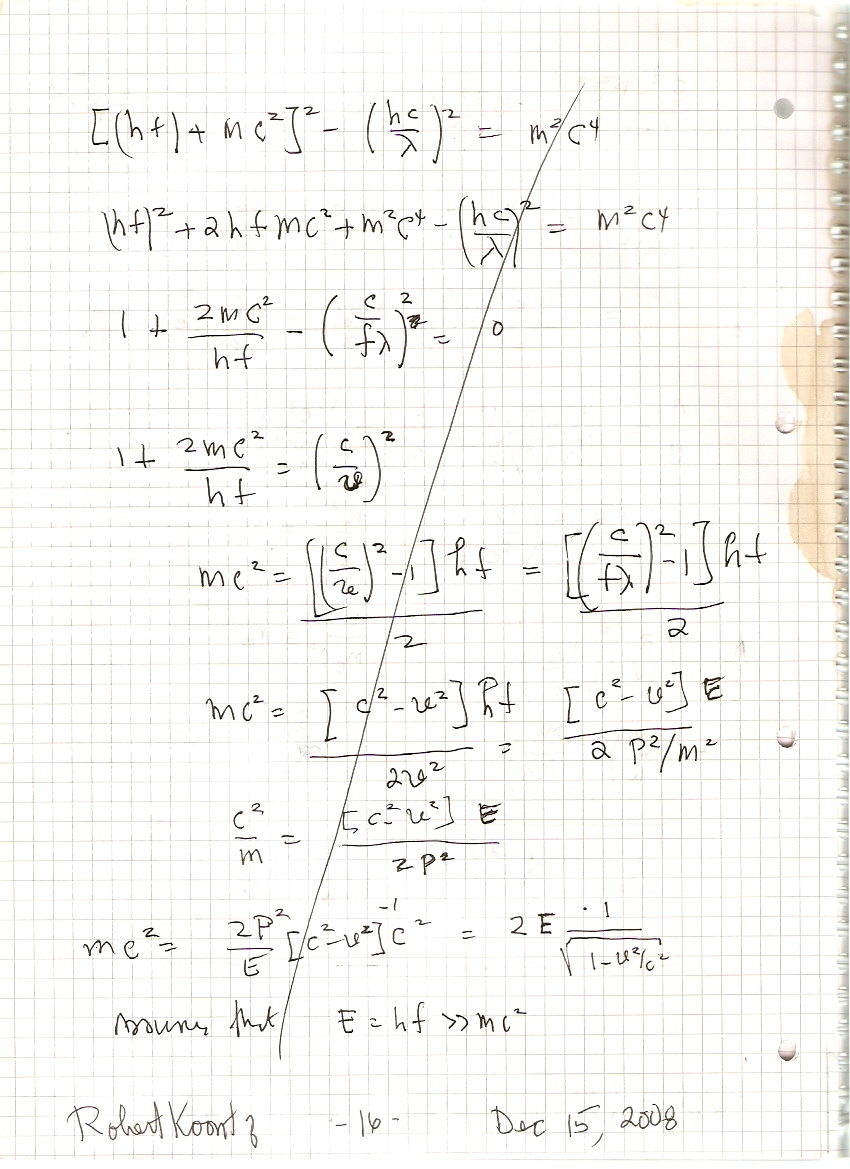 [(hf) + mc²]² - (hc/λ)² = m²c⁴
(hf)² + 2hfmc² + m²c⁴ - (hc/λ)² = m²c⁴
1 + 2mc²/hf - (c/fλ)² = 0
1 + 2mc²/hf = (c/v)²
mc² = [(c/v)² - 1] hf / 2 = [(c/fλ)² - 1] hf / 2
mc² = [c² - v²] hf / 2v² = [c² - v²] E / 2 P²/m²
c²/m = [c² - v²] E / 2P²
mc² = 2P²/E [c² - v²]⁻¹ c² = 2E · 1/√(1 - v²/c²)
Assume that E = hf >> mc²
Robert Koontz -16- Dec 15, 2008